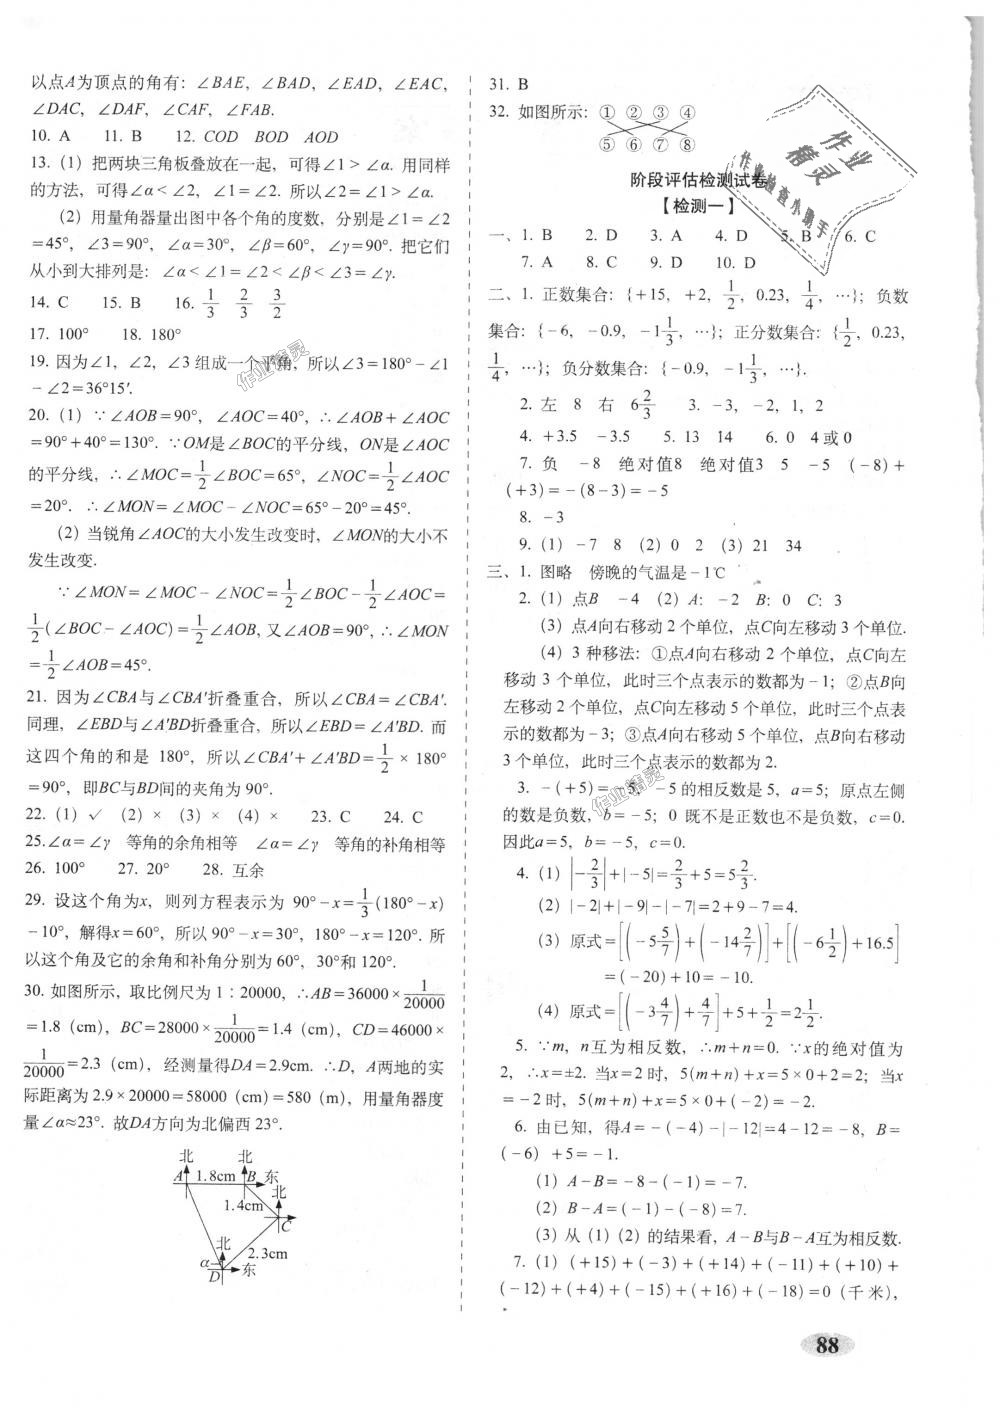 以点A为顶点的角有：∠BAE，∠BAD，∠EAD，∠EAC，
∠DAC，∠DAF，∠CAF，∠FAB.
10. A　11. B　12. COD　BOD　AOD
13.（1）把两块三角板叠放在一起，可得∠1＞∠α. 用同样
的方法，可得∠α＜∠2，∠1＝∠2. 所以∠2＝∠1＞∠α.
（2）用量角器量出图中各个角的度数，分别是∠1＝∠2
＝45°，∠3＝90°，∠α＝30°，∠β＝60°，∠γ＝90°. 把它们
从小到大排列是：∠α＜∠1＝∠2＜∠β＜∠3＝∠γ.
14. C　15. B　16. 1/3　2/3　3/2
17. 100°　18. 180°
19. 因为∠1，∠2，∠3组成一个平角，所以∠3＝180°－∠1
－∠2＝36°15′.
20.（1）∵∠AOB＝90°，∠AOC＝40°，∴∠AOB＋∠AOC
＝90°＋40°＝130°. ∵OM是∠BOC的平分线，ON是∠AOC
的平分线，∴∠MOC＝1/2∠BOC＝65°，∠NOC＝1/2∠AOC
＝20°. ∴∠MON＝∠MOC－∠NOC＝65°－20°＝45°.
（2）当锐角∠AOC的大小发生改变时，∠MON的大小不
发生改变.
∵∠MON＝∠MOC－∠NOC＝1/2∠BOC－1/2∠AOC＝
1/2(∠BOC－∠AOC)＝1/2∠AOB, 又∠AOB＝90°，∴∠MON
＝1/2∠AOB＝45°.
21. 因为∠CBA与∠CBA′折叠重合，所以∠CBA＝∠CBA′.
同理，∠EBD与∠A′BD折叠重合，所以∠EBD＝∠A′BD. 而
这四个角的和是 180°，所以∠CBA′＋∠A′BD＝1/2×180°
＝90°，即BC与BD间的夹角为 90°.
22.（1）√（2）×（3）×（4）×　23. C　24. C
25.∠α＝∠γ　等角的余角相等　∠α＝∠γ　等角的补角相等
26. 100°　27. 20°　28. 互余
29. 设这个角为x，则列方程表示为 90°－x＝1/3(180°－x)
－10°，解得x＝60°，所以 90°－x＝30°，180°－x＝120°. 所
以这个角及它的余角和补角分别为 60°，30°和 120°.
30. 如图所示，取比例尺为 1∶20000，∴AB＝36000×1/20000
＝1.8（cm），BC＝28000×1/20000＝1.4（cm），CD＝46000×
1/20000＝2.3（cm），经测量得DA＝2.9cm. ∴D，A两地的实
际距离为 2.9×20000＝58000（cm）＝580（m），用量角器度
量∠α≈23°. 故DA方向为北偏西 23°.
北　北
A　1.8cm　B　东
北
1.4cm
C
北
2.3cm
α
D　东
31. B
32. 如图所示：①　②　③　④
⑤　⑥　⑦　⑧
阶段评估检测试卷
【检测一】
一、1. B　2. D　3. A　4. D　5. B　6. C
7. A　8. C　9. D　10. D
二、1. 正数集合：{＋15，＋2，1/2，0.23，1/4，…}；负数
集合：{－6，－0.9，－1 1/3，…}；正分数集合：{1/2，0.23，
1/4，…}；负分数集合：{－0.9，－1 1/3，…}.
2. 左　8　右　6 2/3　3. －3，－2，1，2
4. ＋3.5　－3.5　5. 13　14　6. 0　4或 0
7. 负　－8　绝对值8　绝对值3　5　－5　(－8)＋
(＋3)＝－(8－3)＝－5
8. －3
9.（1）－7　8　（2）0　2　（3）21　34
三、1. 图略　傍晚的气温是－1℃
2.（1）点B　－4　（2）A：－2　B：0　C：3
（3）点A向右移动 2 个单位，点C向左移动 3 个单位.
（4）3 种移法：①点A向右移动 2 个单位，点C向左
移动 3 个单位，此时三个点表示的数都为－1；②点B向
左移动 2 个单位，点C向左移动 5 个单位，此时三个点表
示的数都为－3；③点A向右移动 5 个单位，点B向右移动
3 个单位，此时三个点表示的数都为 2.
3. －(＋5)＝－5，－5 的相反数是 5，a＝5；原点左侧
的数是负数，b＝－5；0 既不是正数也不是负数，c＝0.
因此a＝5，b＝－5，c＝0.
4.（1）|－2/3|＋|－5|＝2/3＋5＝5 2/3.
（2）|－2|＋|－9|－|－7|＝2＋9－7＝4.
（3）原式＝[(－5 5/7)＋(－14 2/7)]＋[(－6 1/2)＋16.5]
＝(－20)＋10＝－10.
（4）原式＝[(－3 4/7)＋4/7]＋5＋1/2＝2 1/2.
5. ∵m，n互为相反数，∴m＋n＝0. ∵x的绝对值为
2，∴x＝±2. 当x＝2 时，5(m＋n)＋x＝5×0＋2＝2；当x
＝－2 时，5(m＋n)＋x＝5×0＋(－2)＝－2.
6. 由已知，得A＝－(－4)－|－12|＝4－12＝－8，B＝
(－6)＋5＝－1.
（1）A－B＝－8－(－1)＝－7.
（2）B－A＝(－1)－(－8)＝7.
（3）从（1）（2）的结果看，A－B与B－A互为相反数.
7.（1）(＋15)＋(－3)＋(＋14)＋(－11)＋(＋10)＋
(－12)＋(＋4)＋(－15)＋(＋16)＋(－18)＝0（千米），
88
作业精灵
作业检查小助手
作业精灵
作业精灵